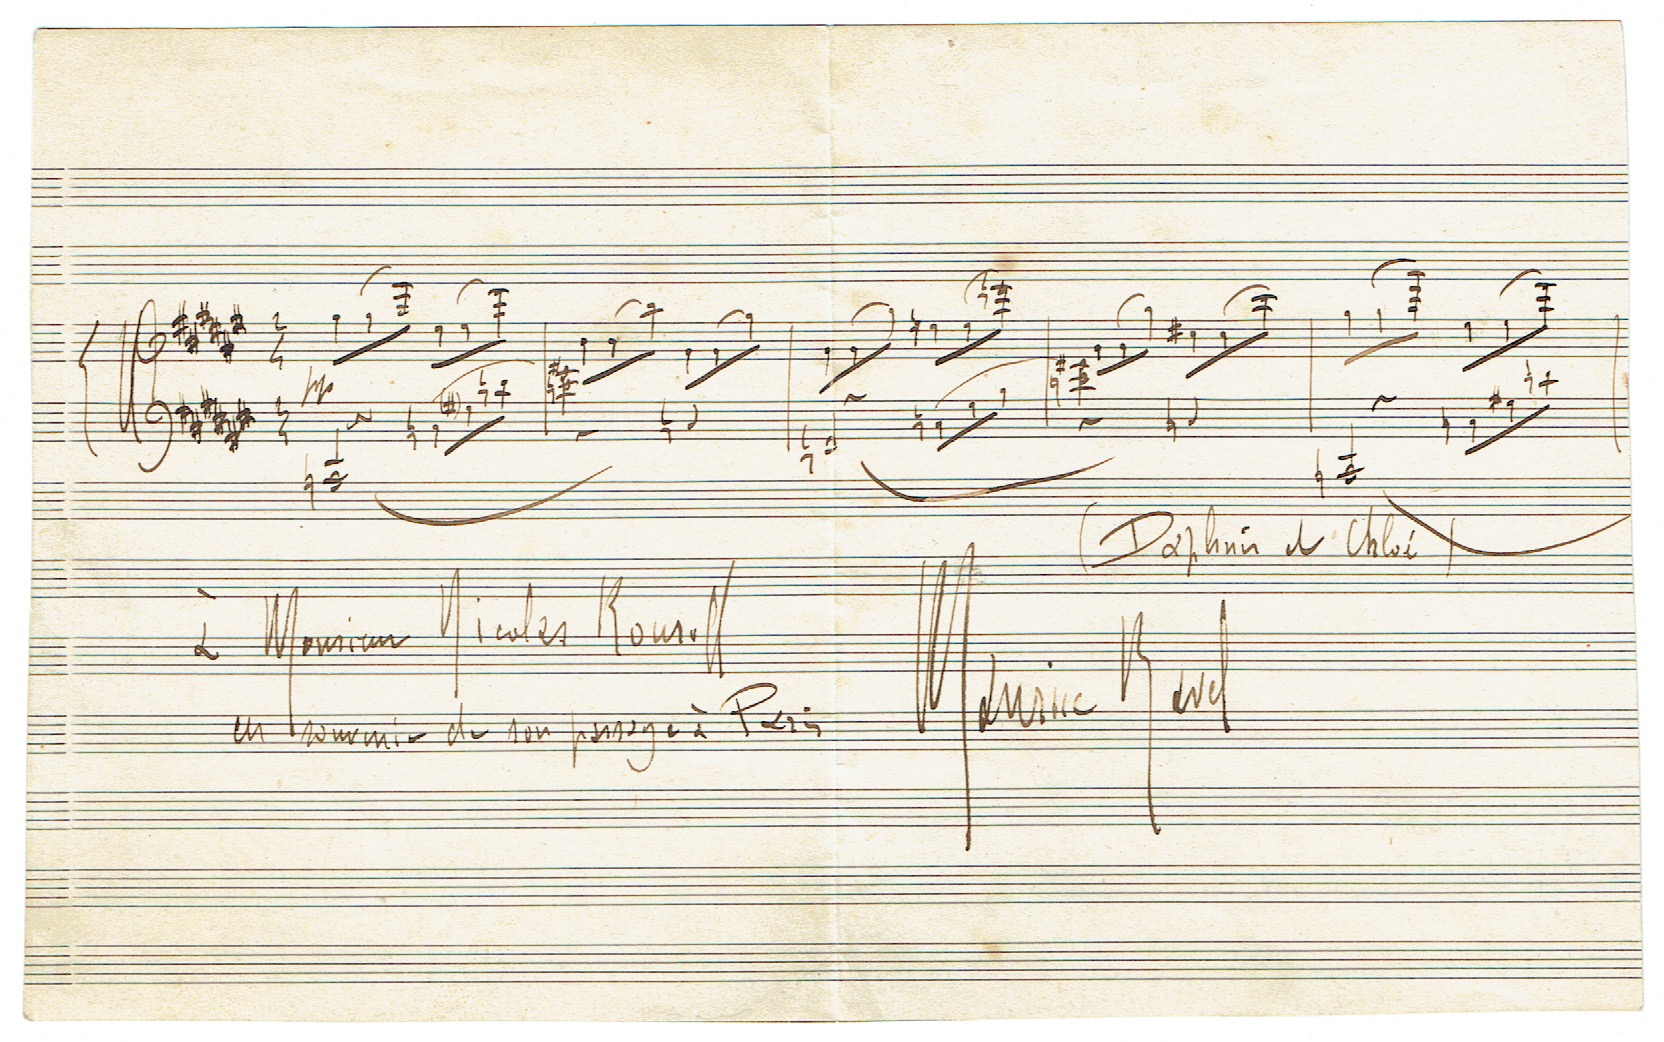 pp
(Daphnis et Chloé)
à Monsieur Nicolas
en souvenir de son passage à Paris
Maurice Ravel